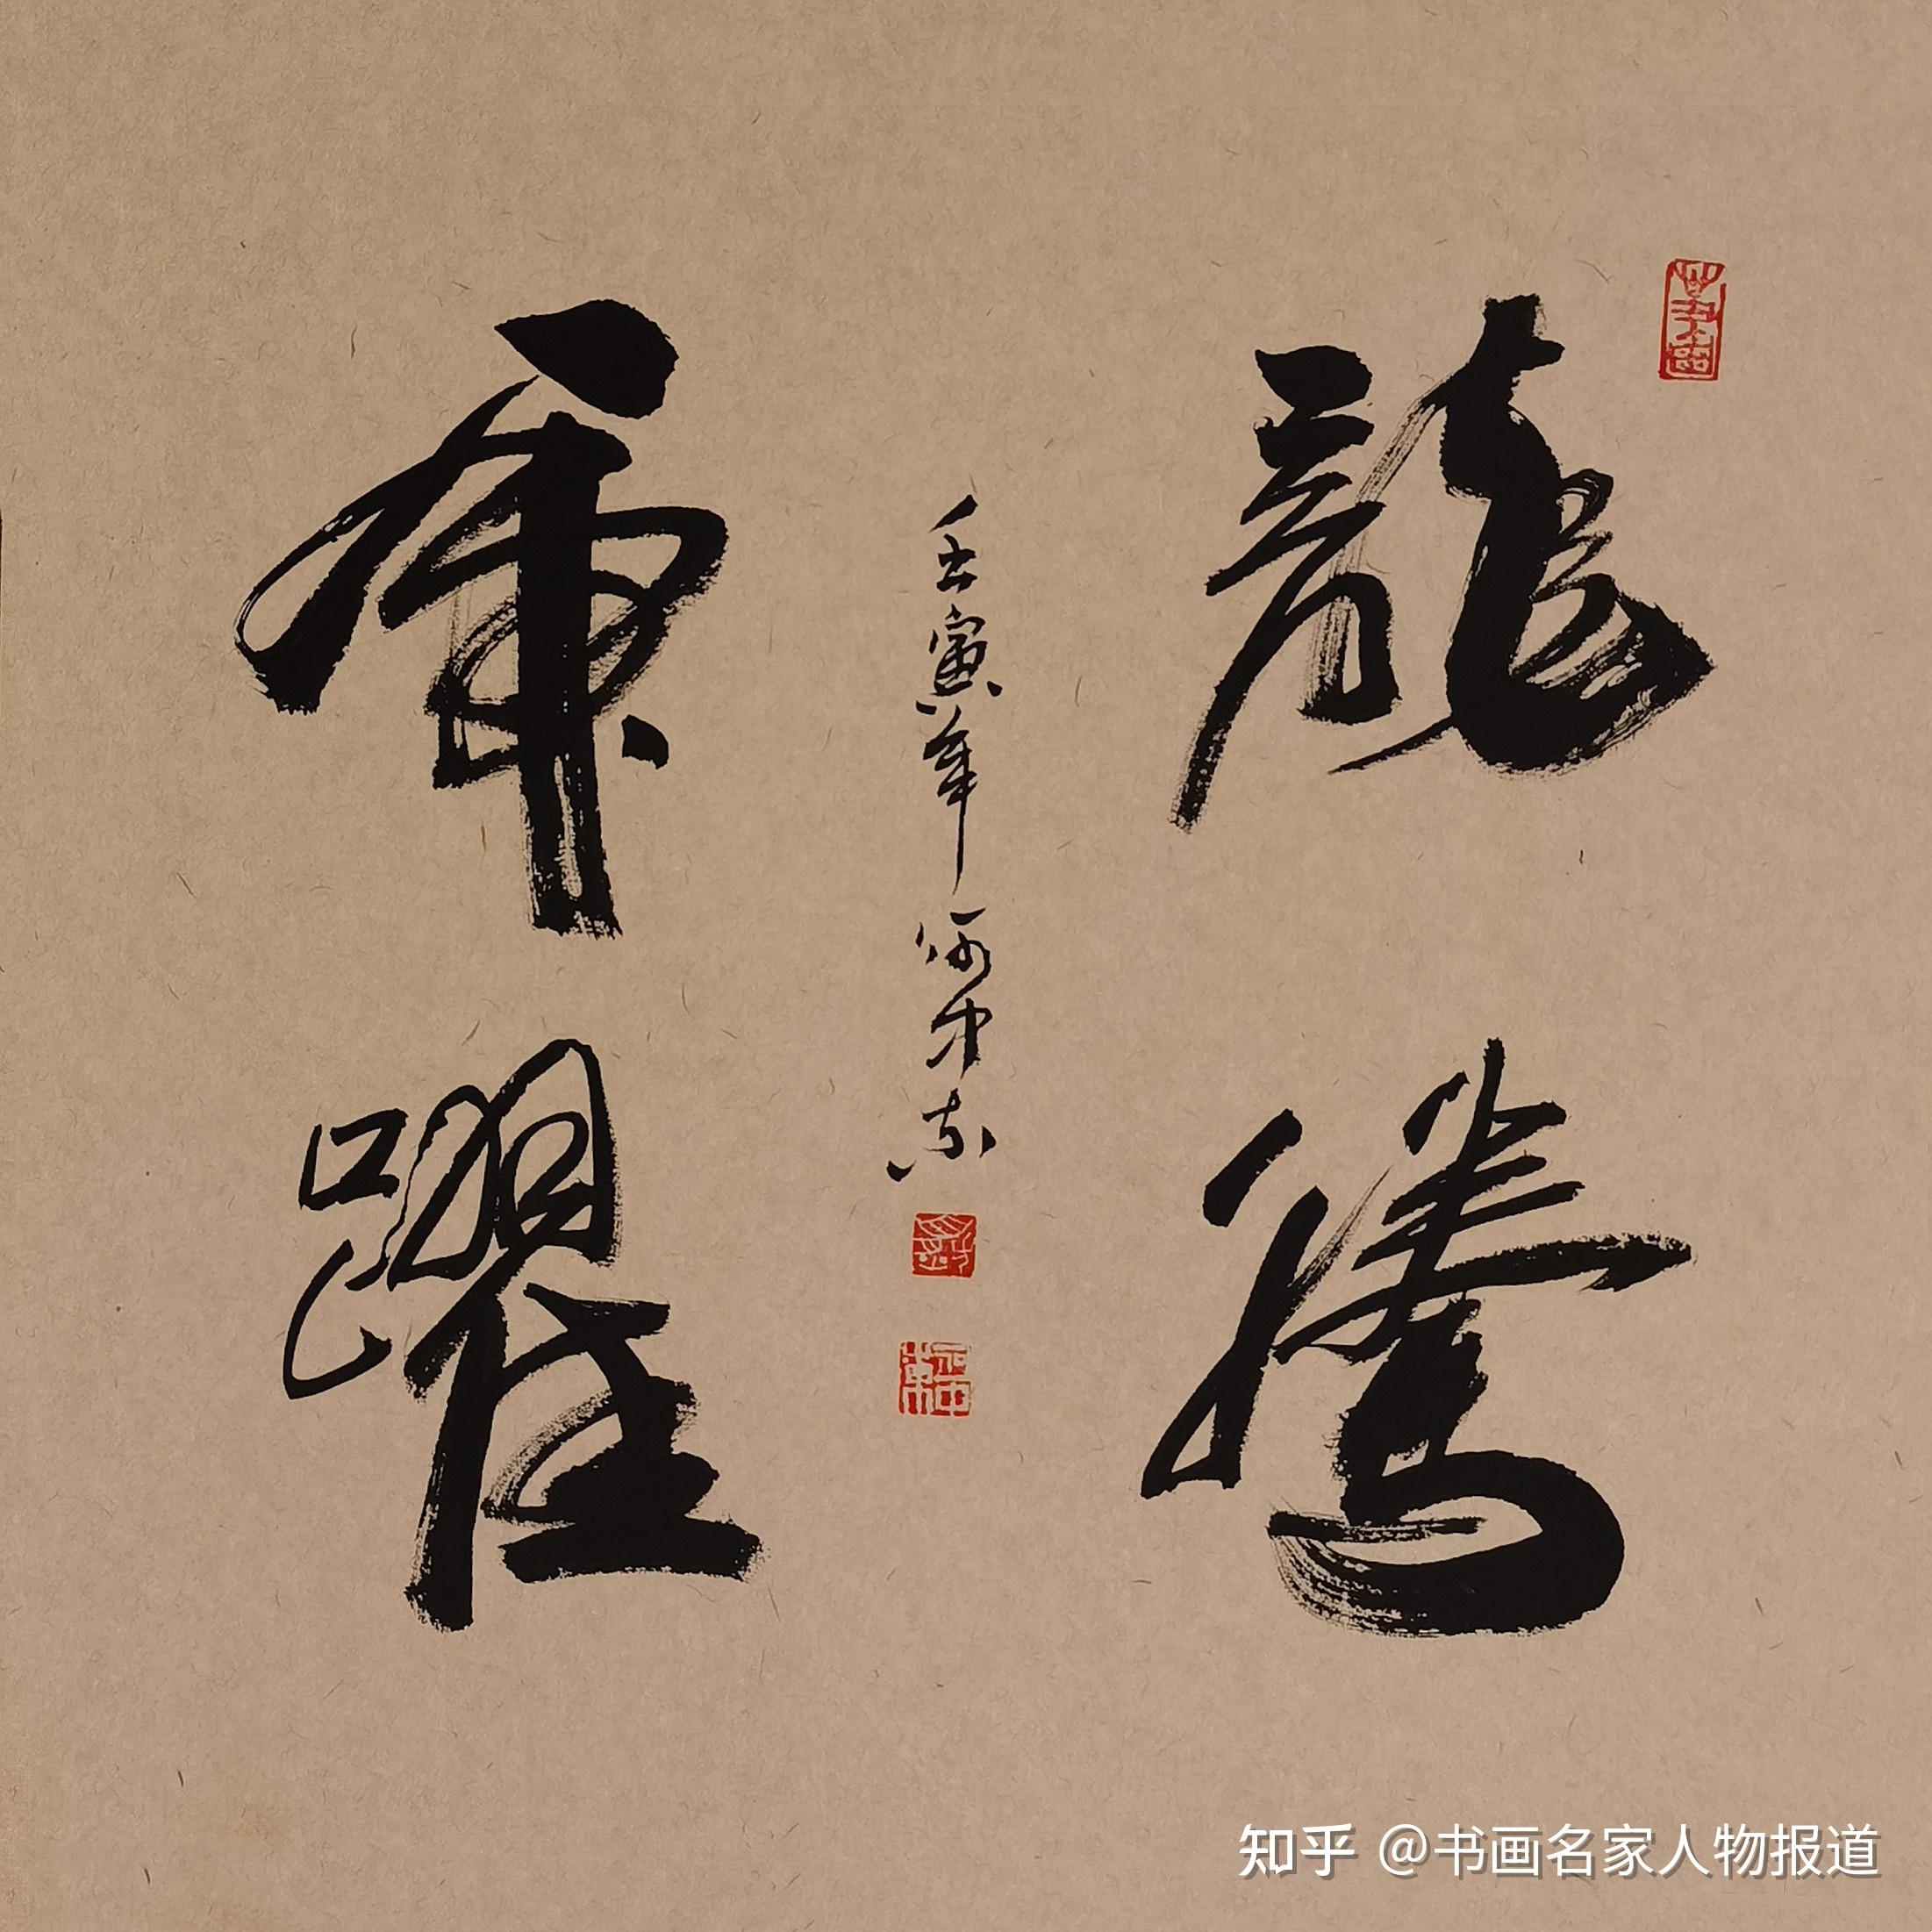 龍騰
壬寅年
虎躍
知乎 @书画名家人物报道